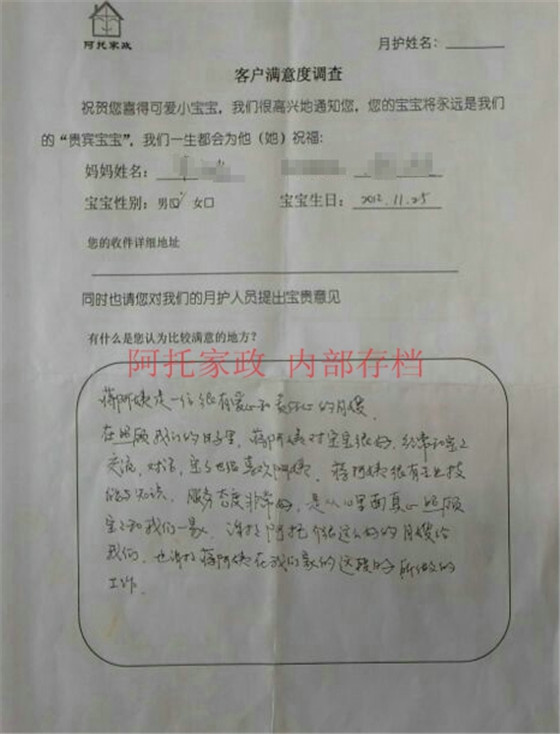 阿托家政
月护姓名：
客户满意度调查
祝贺您喜得可爱小宝宝，我们很高兴地通知您，您的宝宝将永远是我们
的“贵宾宝宝”，我们一生都会为他（她）祝福:
妈妈姓名：
宝宝性别：男☑ 女口 宝宝生日：2012.11.25
您的收件详细地址
同时也请您对我们的月护人员提出宝贵意见
有什么是您认为比较满意的地方？
阿托家政 内部存档
蒋阿姨是一位很有爱心和责任心的月嫂。
在照顾我们的日子里，蒋阿姨对宝宝很好，经常和宝宝
交流，对话，宝宝也很喜欢阿姨。蒋阿姨很有专业技
能与知识，服务态度非常好，是从心里面真心照顾
宝宝和我们一家，谢谢阿托介绍这么好的月嫂给
我们，也谢谢蒋阿姨在我们家的这段时 所做的
工作。